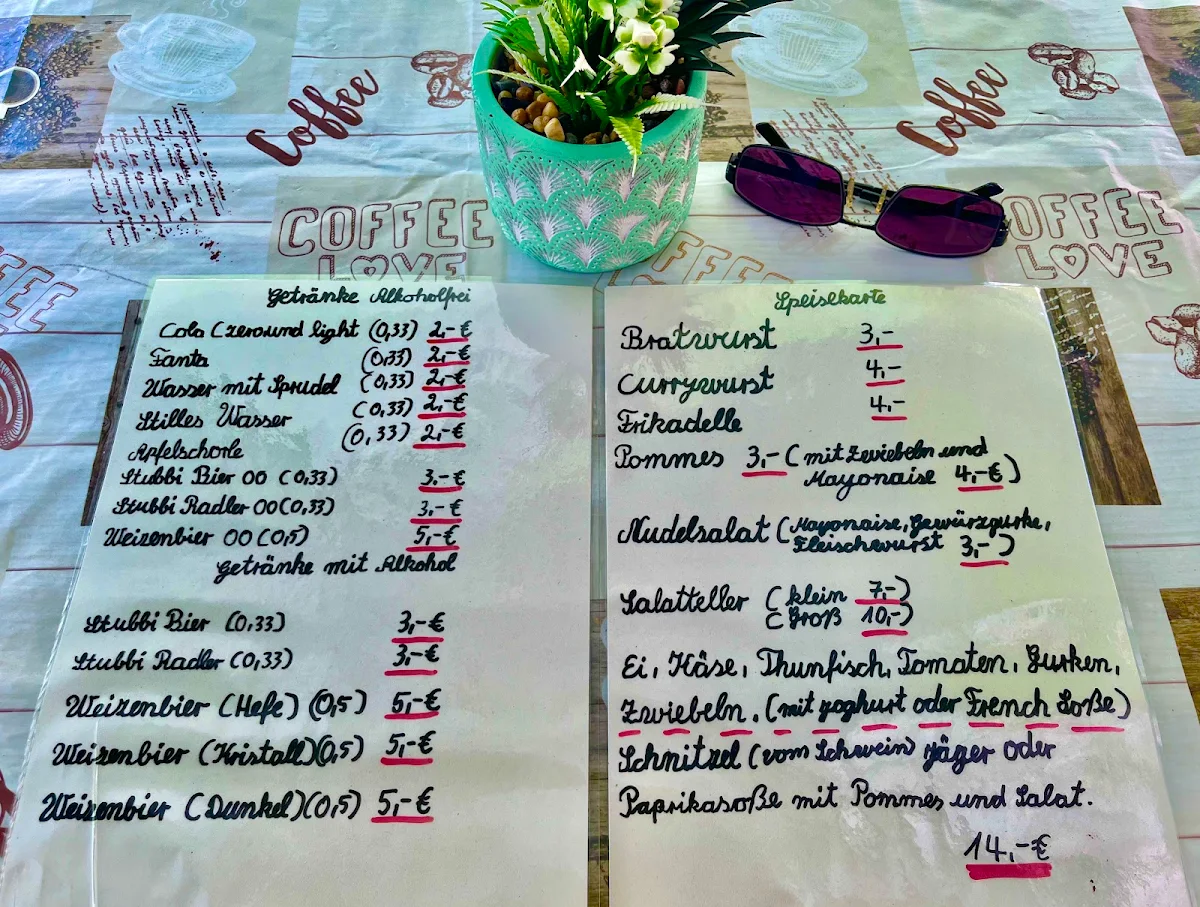 Coffee
Coffee
COFFEE
LOVE
COFFEE
LOVE
COFFEE
COFFEE
Getränke Alkoholfrei
Cola (zero und light (0,33) 2,-€
Fanta (0,33) 2,-€
Wasser mit Sprudel (0,33) 2,-€
Stilles Wasser (0,33) 2,-€
Apfelschorle (0,33) 2,-€
Stubbi Bier 00 (0,33) 3,-€
Stubbi Radler 00 (0,33) 3,-€
Weizenbier 00 (0,5) 5,-€
Getränke mit Alkohol
Stubbi Bier (0,33) 3,-€
Stubbi Radler (0,33) 3,-€
Weizenbier (Hefe) (0,5) 5,-€
Weizenbier (Kristall) (0,5) 5,-€
Weizenbier (Dunkel) (0,5) 5,-€
Speisekarte
Bratwurst 3,-
Currywurst 4,-
Frikadelle 4,-
Pommes 3,- (mit Zwiebeln und
Mayonaise 4,-€)
Nudelsalat (Mayonaise, Gewürzgurke,
Fleischwurst 3,-)
Salatteller (klein 7,-)
(Groß 10,-)
Ei, Käse, Thunfisch, Tomaten, Gurken,
Zwiebeln. (mit yoghurt oder French Soße)
Schnitzel (vom Schwein) Jäger oder
Paprikasoße mit Pommes und Salat.
14,-€